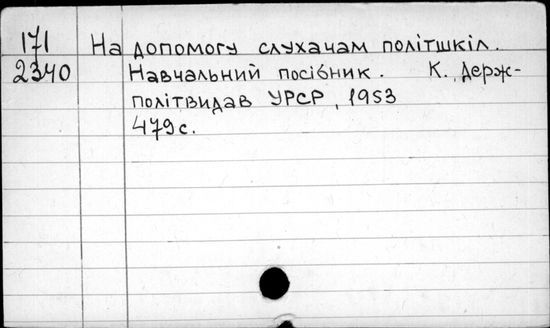 171 На допомогу слухачам політшкіл.
2340 Навчальний посібник. К., Держ-
політвидав УРСР, 1953
479с.